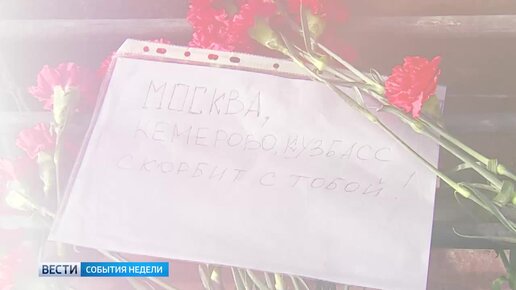 МОСКВА,
КЕМЕРОВО, КУЗБАСС
СКОРБИТ С ТОБОЙ!
ВЕСТИ СОБЫТИЯ НЕДЕЛИ